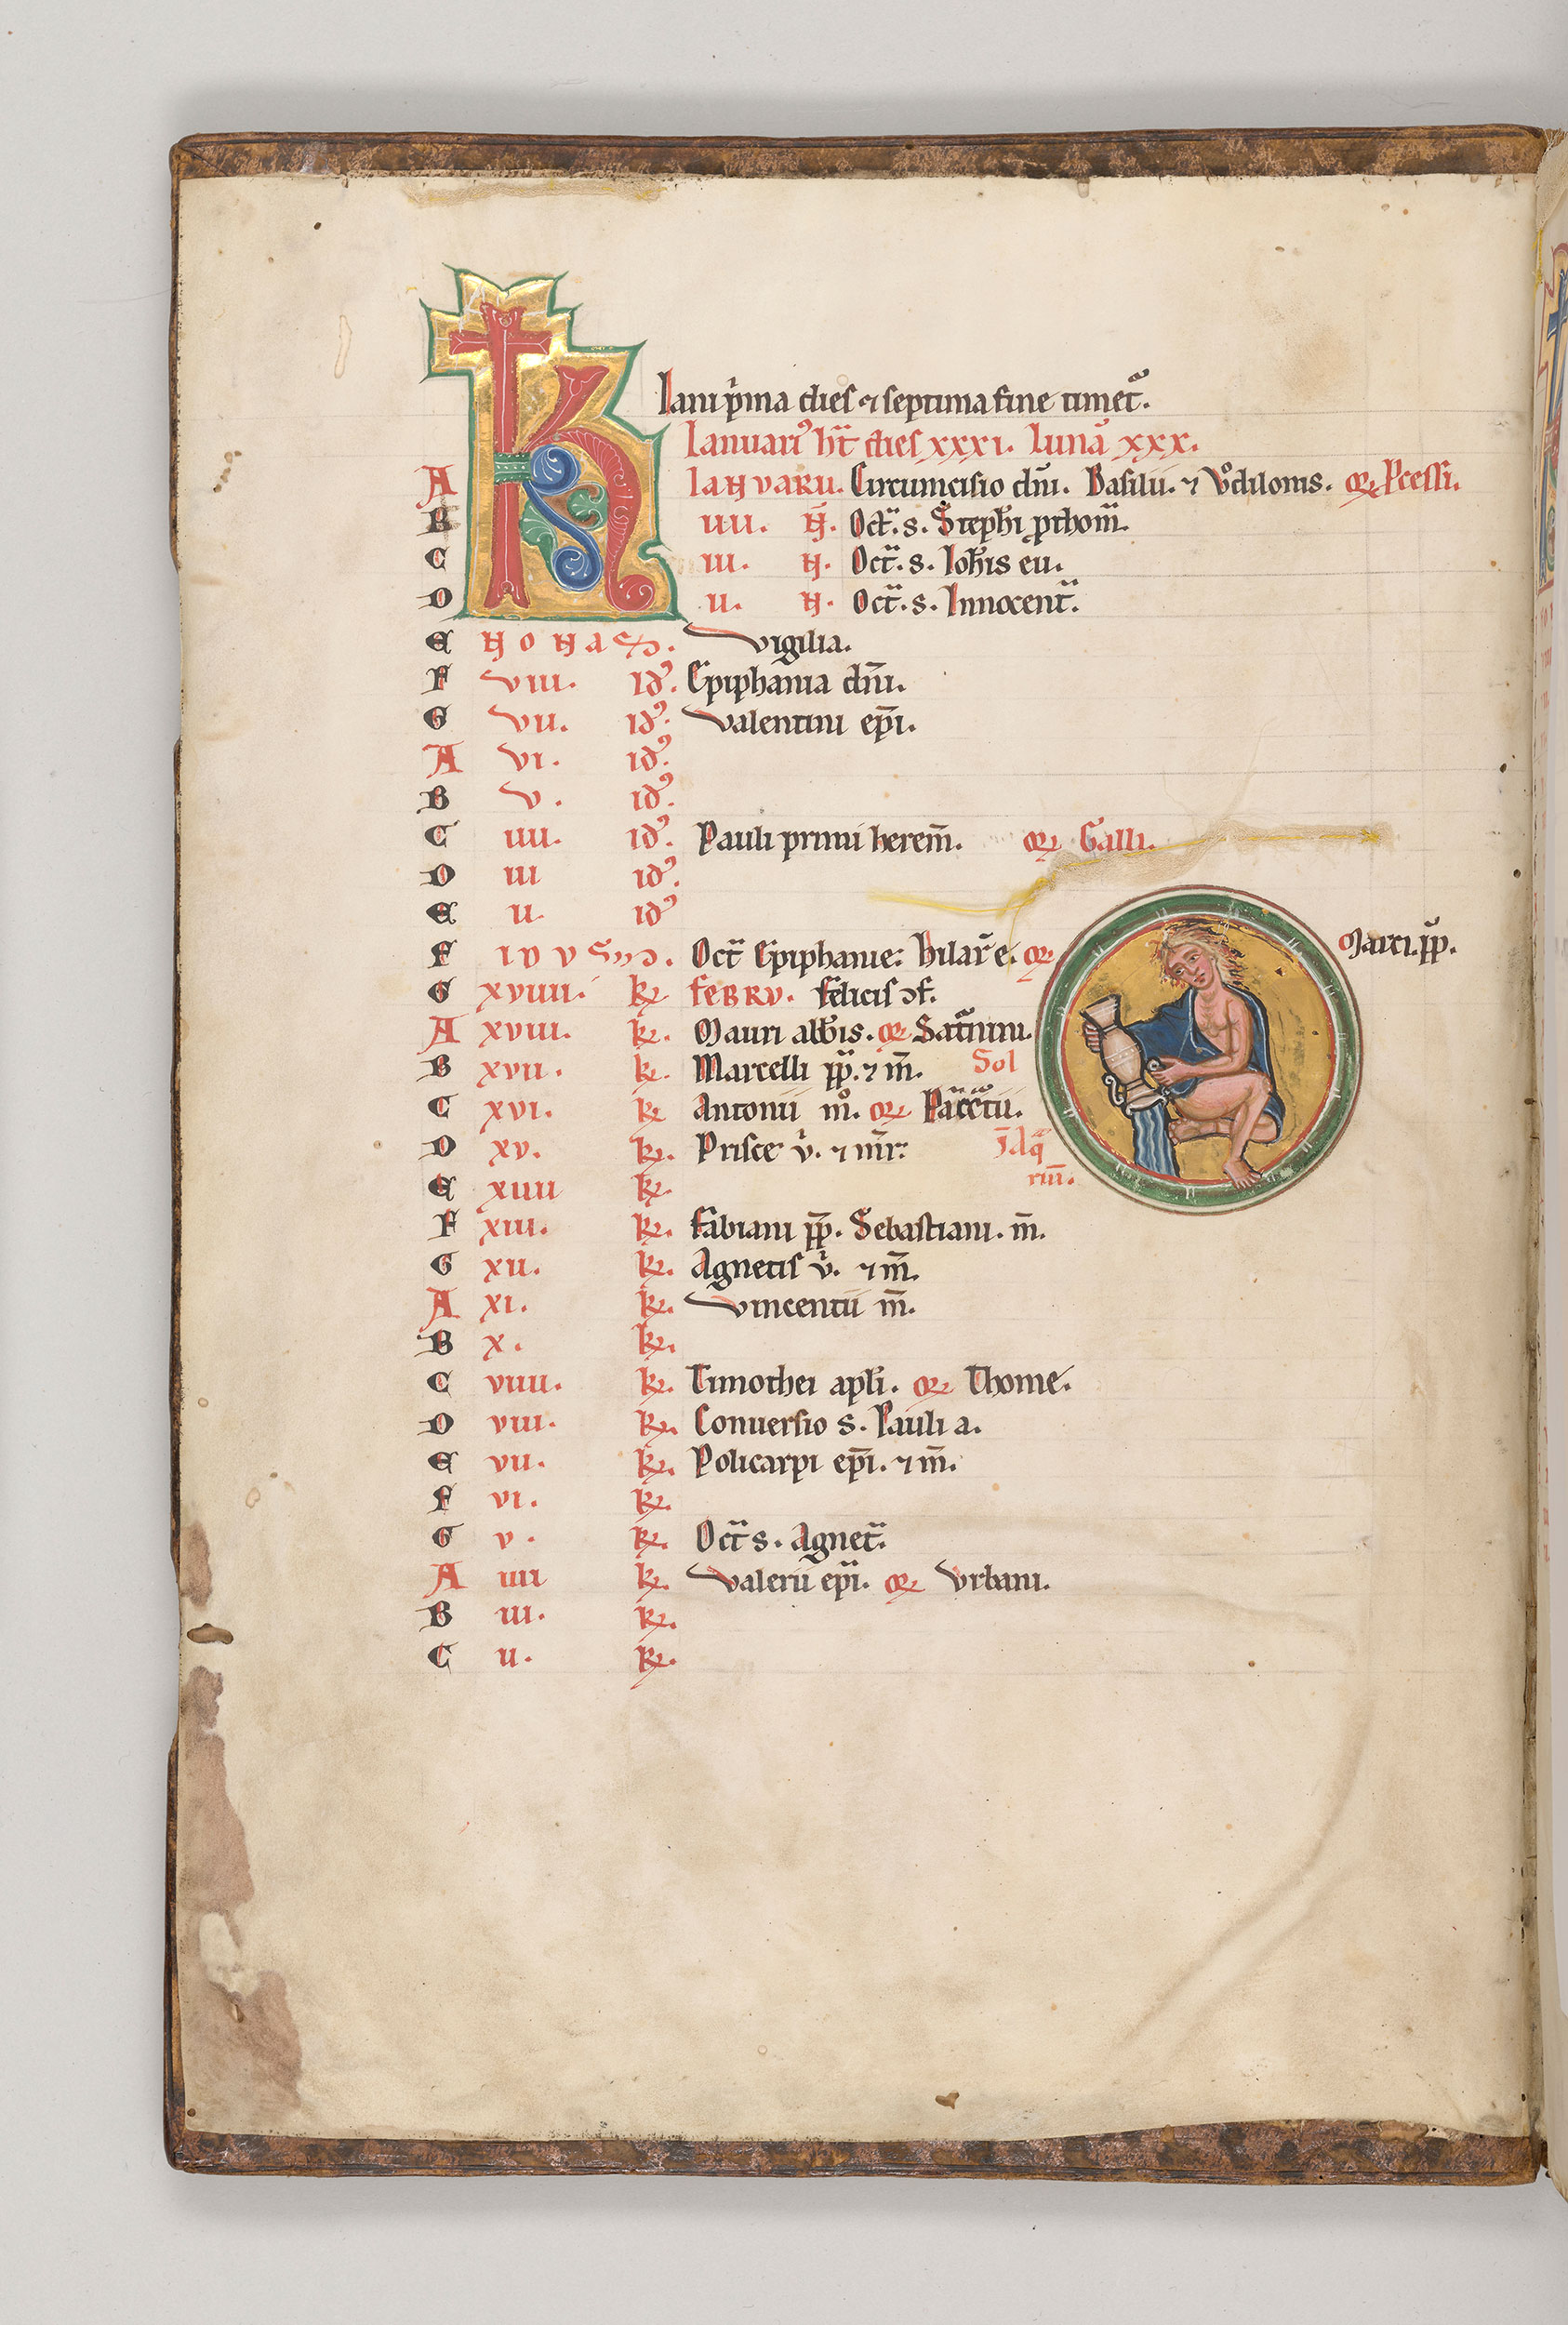 Iani p̾ma dies ⁊ septima fine timet᷑.
Ianuari᷒ h̄t dies xxxi. Luna᷑ xxx.
A IANVARII. Circumcisio dn̄i. Basilii. ⁊ Vͦdilonis.
B IIII. N̄. Oct̄. s. Steph̄i p̱thom̄.
C III. N. Oct̄. s. Ioh̄is eu.
D II. N. Oct̄. s. Innocent̄.
E NONAS. Vigilia.
F VIII. Id᷒. Epiphania dn̄i.
G VII. Id᷒. Valentini ep̄i.
A VI. Id᷒.
B V. Id᷒.
C IIII. Id᷒. Pauli primi herem̄. Galli.
D III Id᷒.
E II. Id᷒
F IDVS. Oct̄ Epiphanie. hilar̄e. Marci. pp̄.
G XVIIII. kł FEBRV. Felicis ↄf.
A XVIII. kł. Mauri abb̄is.
B XVII. kł. Marcelli pp̄. ⁊ m̄. Sol
C XVI. kł Antonii mͦ.
D XV. kł. Prisce v̾. ⁊ mr̄. Ī Aq̄
riū.
E XIIII kł.
F XIII. kł. Fabiani pp̄. Sebastiani. m̄.
G XII. kł. Agnetis v̾. ⁊ m̄.
A XI. kł. Vincentii m̄.
B X. kł.
C VIIII. kł. Timothei apl̄i. Thome.
D VIII. kł. Conuersio s. Pauli a.
E VII. kł. Policarpi ep̄i. ⁊ m̄.
F VI. kł.
G V. kł. Oct̄ s. Agnet̄.
A IIII kł. Valerii ep̄i. Vrbani.
B III. kł.
C II. kł.